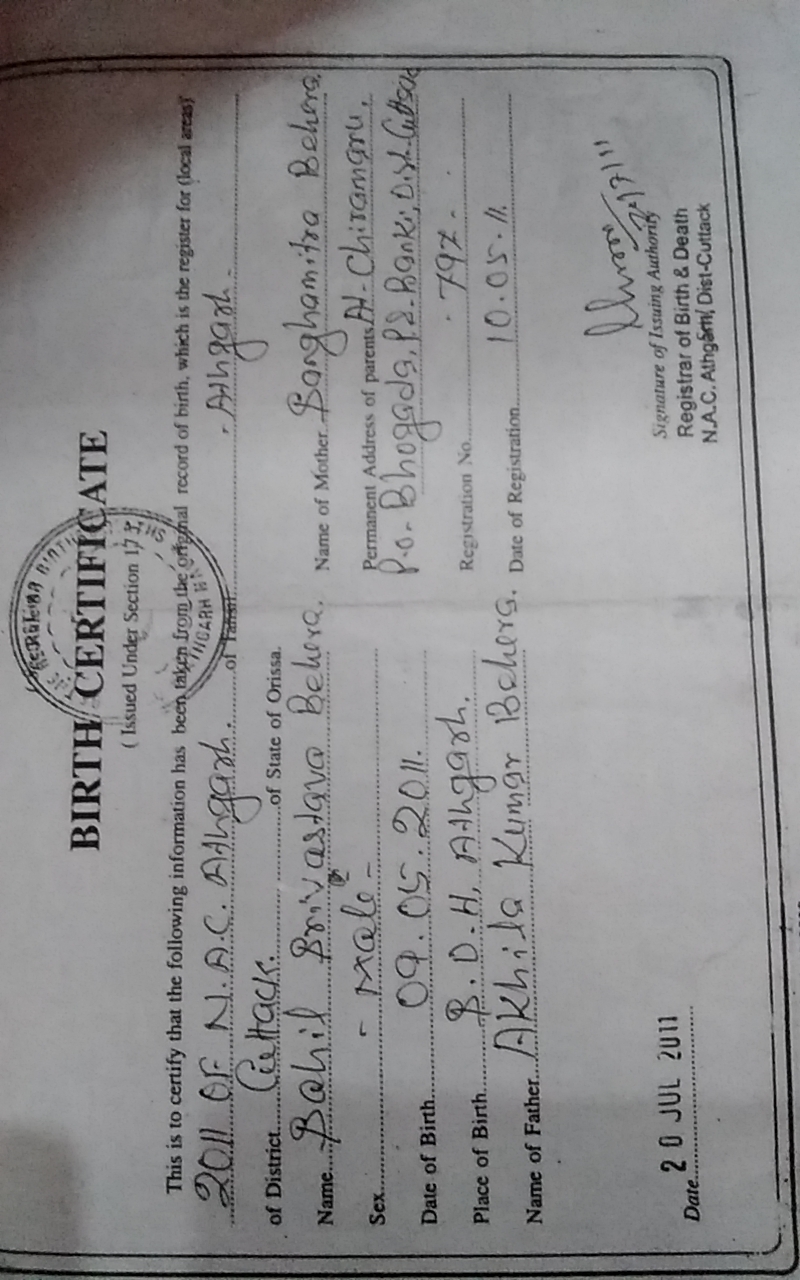 BIRTH CERTIFICATE
( Issued Under Section 17
This is to certify that the following information has been taken from the original record of birth, which is the register for (local areas)
2011 OF N.A.C. Athgarh. of Tahsil Athgarh -
of District Cuttack. of State of Orissa.
Name Sahil Srivastava Behera. Name of Mother Sanghamitra Behera
Sex - Male - Permanent Address of parents At- Chiramaru,
P.o- Bhogada, P.S- Banki, Dist- Cuttack
Date of Birth 09.05.2011.
Place of Birth S.D.H, Athgarh. Registration No. 797 -
Name of Father Akhila Kumar Behera. Date of Registration 10.05.11.
Signature of Issuing Authority
Registrar of Birth & Death
N.A.C. Athgarh/ Dist-Cuttack
Date 20 JUL 2011